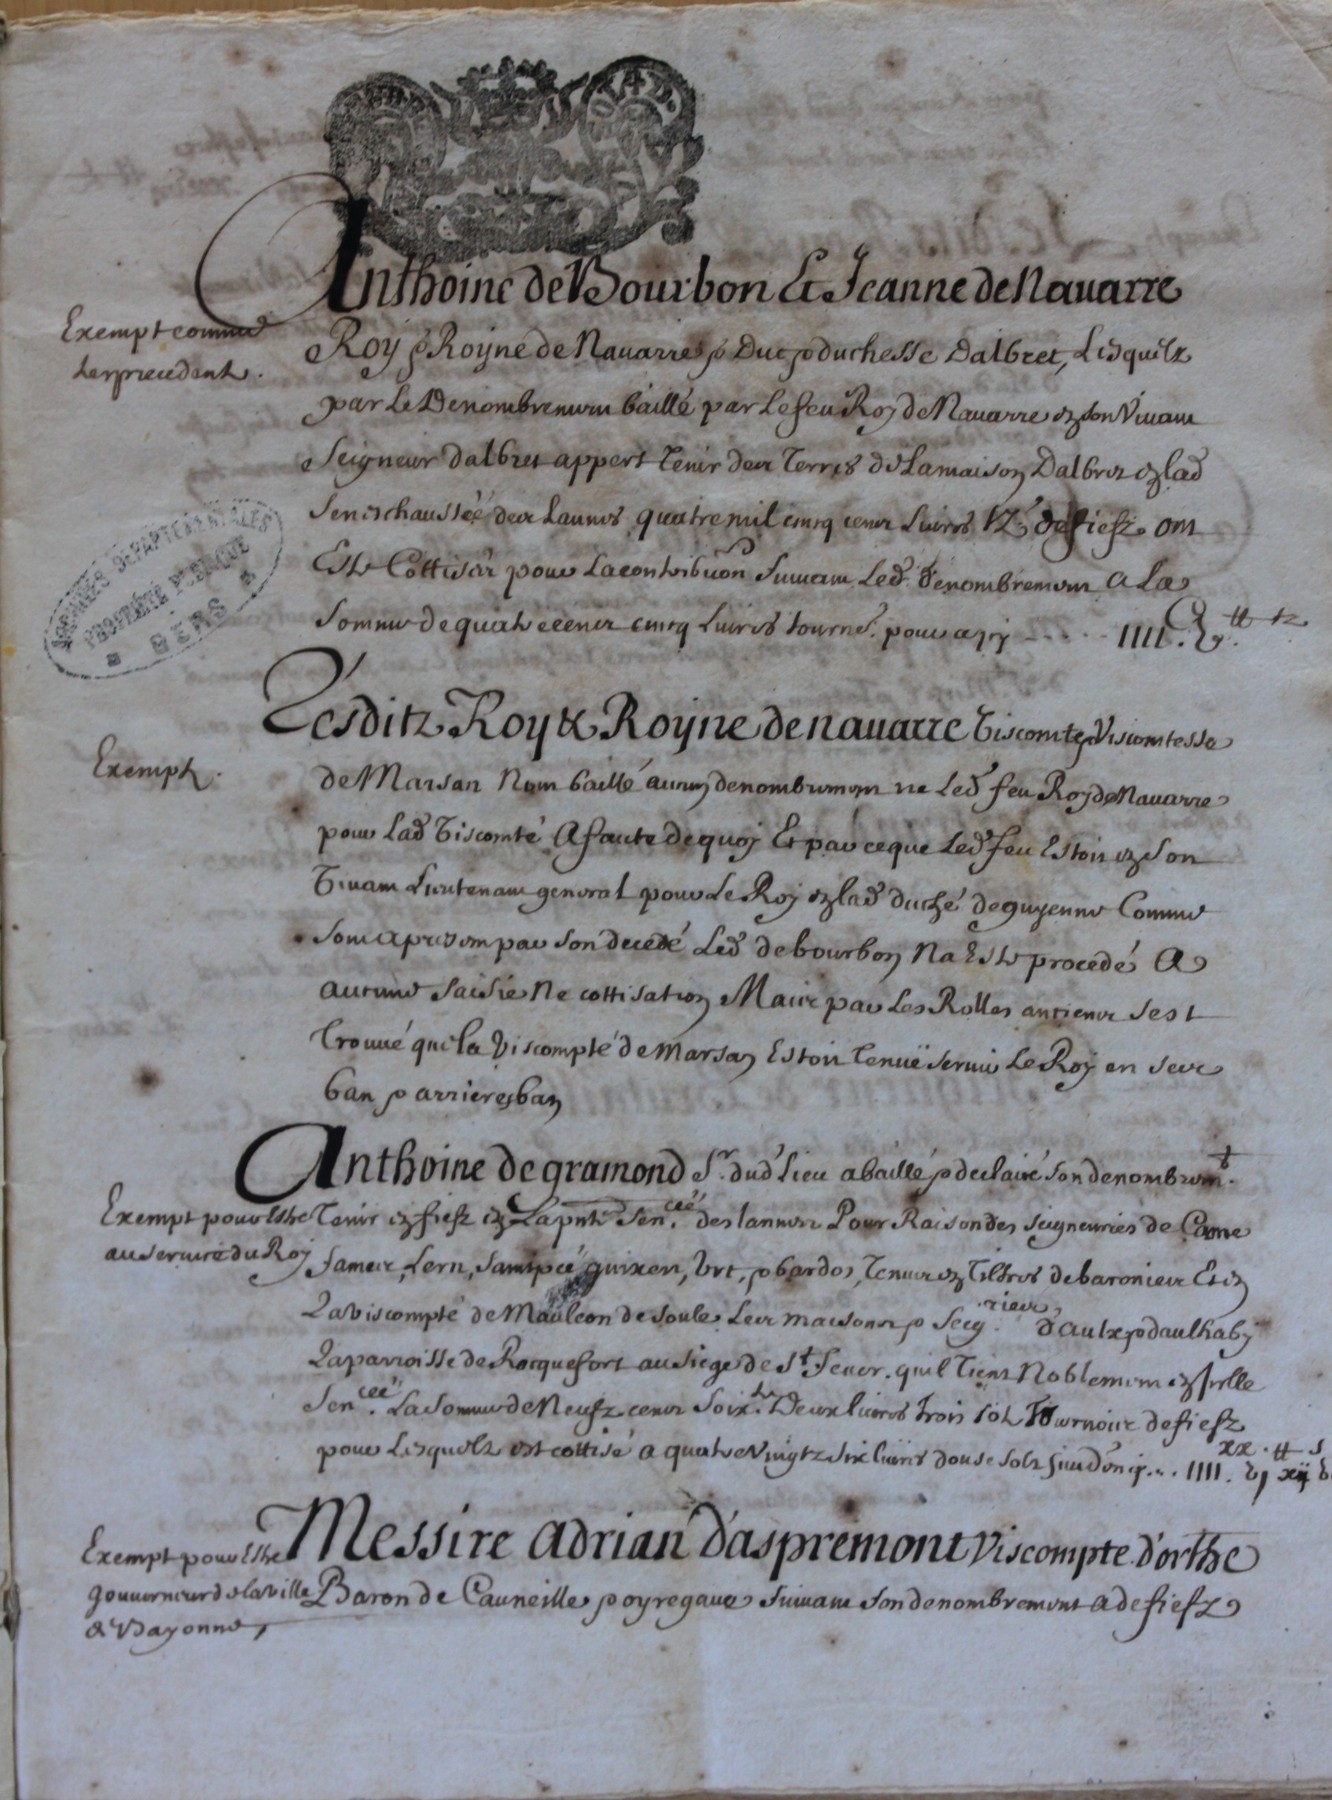 Anthoine de Bourbon Et Jeanne de Navarre
Exempt comme
les precedent.
Roy & Royne de Navarre & Duc & Duchesse Dalbret, Lesquelz
par Le Denombrement baillé par le feu Roy de Navarre en son Vivant
Seigneur dalbret appert tenir des Terres de La maison Dalbret en lad
Seneschaussée des Lannes quatre mil cinq cens Livres tz de fiefz ont
Este Cottisés pour la contribuon suivant Led. denombrement a La
somme de quatre cens cinq Livres tourns. pour cecy ----- IIII.C V. tt tz
ARCHIVES DEPARTEMENTALES
PROPRIÉTÉ PUBLIQUE
GERS
Lesditz Roy & Royne de navarre Viscomte & Viscomtesse
Exempt.
de Marsan Nont baillé aucun denombrement ne Led feu Roy de Navarre
pour Lad Viscomté A faute de quoy Et par ce que Led feu Estoit en son
Vivant Lieutenant general pour Le Roy en lad duché de guyenne Comme
son apres par son decedé Led de bourbon Na Este procedé A
aucune saisie Ne cottisation Mais par Les Rolles anciens sest
Trouvé que la Viscompté de Marsan Estoit tenue servir Le Roy en ses
ban & arriereban
Anthoine de gramond Sr. dud Lieu a baillé & declairé son denombremt.
Exempt pour Estre
au service du Roy
Tenir en fiefz en La pnte Sen.cée des lannes Pour Raison des seigneuries de Came
Sames, Lern, Saint pée guixen, Urt, & bardos, Tenues en Tiltres de baronies Et en
La viscompté de Mauleon de soule Les maisons & Seig.ries d'aulx & daulhaby
La parroisse de Rocquefort au siege de St. Sever. quil Tient Noblement en Icelle
Sen.cée. La Somme de Neufz cens Soix.te Deux livres trois solz Tournois de fiefz
pour Lesquelz est cottisé a quatre Vingtz six livres douse solz six dons cy... IIII.xx VJ tt xij s
Messire Adrian d'aspremont Viscompte d'orthe
Exempt pour Estre
gouverneur de la ville
de Bayonne,
Baron de Cauneille & oyregave suivant son denombrement a de fiefz